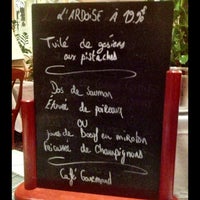 L'ARDOISE À 19,50€
Tuilé de gésiers
aux pistaches
Dos de saumon
Etuvée de poireaux
OU
joues de Boeuf en miroton
Fricassée de Champignons
Café Gourmand